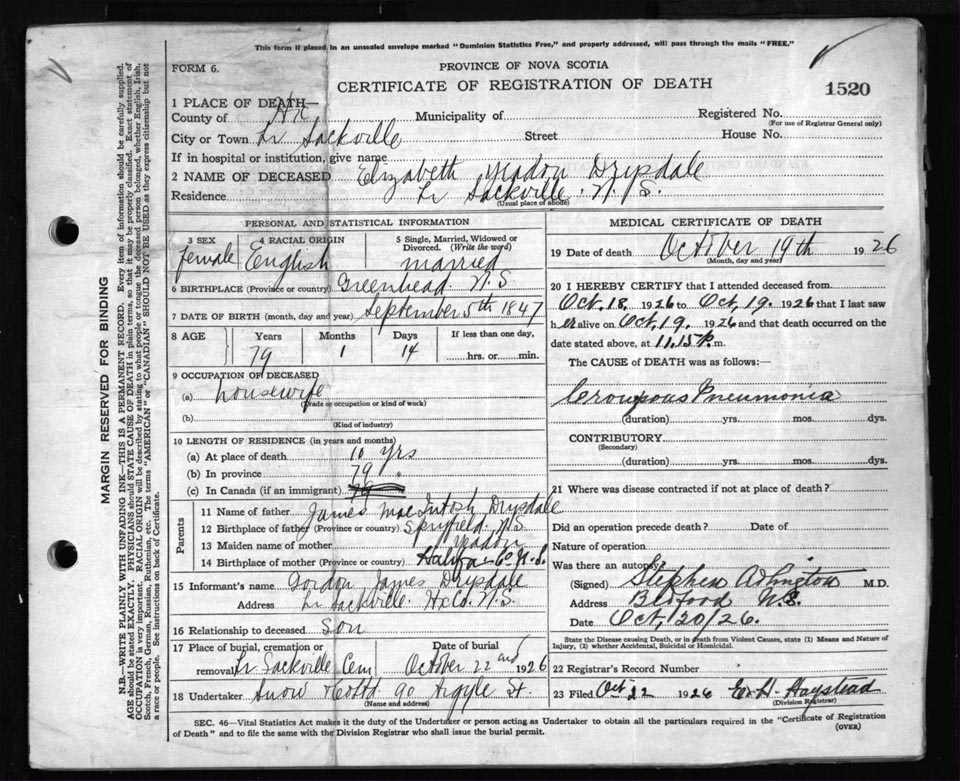 This form if placed in an unsealed envelope marked "Dominion Statistics Free," and properly addressed, will pass through the mails "FREE."
FORM 6.
PROVINCE OF NOVA SCOTIA
CERTIFICATE OF REGISTRATION OF DEATH
1520
1 PLACE OF DEATH—
County of Hx Municipality of Registered No.
(For use of Registrar General only)
City or Town Lr Sackville Street House No.
If in hospital or institution, give name
2 NAME OF DECEASED Elizabeth Yeadon Drysdale
Residence Lr Sackville. N. S.
(Usual place of abode)
PERSONAL AND STATISTICAL INFORMATION
3 SEX 4 RACIAL ORIGIN 5 Single, Married, Widowed or Divorced. (Write the word)
female English married
6 BIRTHPLACE (Province or country) Greenhead. N.S.
7 DATE OF BIRTH (month, day and year) September 5th 1847
8 AGE Years Months Days If less than one day,
79 1 14 hrs. or min.
9 OCCUPATION OF DECEASED
(a) housewife
(Trade or occupation or kind of work)
(b)
(Kind of industry)
10 LENGTH OF RESIDENCE (in years and months)
(a) At place of death 10 yrs
(b) In province 79 "
(c) In Canada (if an immigrant)
Parents
11 Name of father James MacIntosh Drysdale
12 Birthplace of father (Province or country) Spryfield. N.S.
13 Maiden name of mother Yeadon
14 Birthplace of mother (Province or country) Halifax Co. N.S.
15 Informant's name Gordon James Drysdale
Address Lr Sackville. Hx Co. N.S.
16 Relationship to deceased Son
17 Place of burial, cremation or removal Lr Sackville Cem Date of burial October 22nd 1926
18 Undertaker Snow & Co Ltd. 90 Argyle St.
(Name and address)
MEDICAL CERTIFICATE OF DEATH
19 Date of death October 19th 1926
(Month, day and year)
20 I HEREBY CERTIFY that I attended deceased from
Oct. 18, 1926 to Oct. 19. 1926 that I last saw
her alive on Oct. 19. 1926 and that death occurred on the
date stated above, at 11.15 P.m.
The CAUSE of DEATH was as follows:—
Croupous Pneumonia
(duration) yrs. mos. dys.
CONTRIBUTORY
(Secondary)
(duration) yrs. mos. dys.
21 Where was disease contracted if not at place of death?
Did an operation precede death? Date of
Nature of operation
Was there an autopsy
(Signed) Stephen M.D.
Address N.S.
Date Oct. 20/26.
State the Disease causing Death, or in death from Violent Causes, state (1) Means and Nature of
Injury, (2) whether Accidental, Suicidal or Homicidal.
22 Registrar's Record Number
23 Filed Oct 22 1926 E. H. Haystead
(Division Registrar)
SEC. 46—Vital Statistics Act makes it the duty of the Undertaker or person acting as Undertaker to obtain all the particulars required in the "Certificate of Registration
of Death" and to file the same with the Division Registrar who shall issue the burial permit.
(OVER)
MARGIN RESERVED FOR BINDING
N.B.—WRITE PLAINLY WITH UNFADING INK—THIS IS A PERMANENT RECORD. Every item of information should be carefully supplied.
AGE should be stated EXACTLY. PHYSICIANS should STATE CAUSE OF DEATH in plain terms, so that it may be properly classified. Exact statement of
OCCUPATION is very important. RACIAL ORIGIN will be described by stating to what people or tongue the deceased person belonged, whether English, Irish,
Scotch, French, German, Russian, Ruthenian, etc. The terms "AMERICAN" or "CANADIAN" SHOULD NOT BE USED as they express citizenship but not
a race or people. See instructions on back of Certificate.